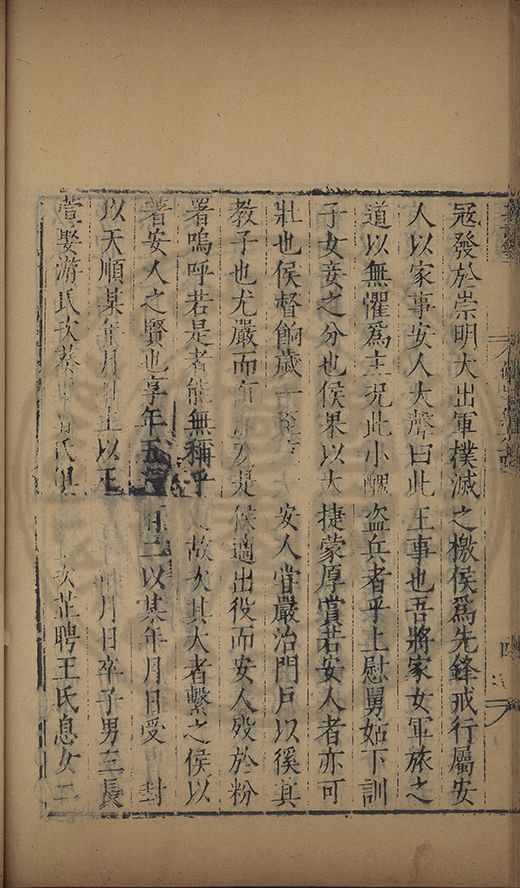 寇發於崇明大出軍撲滅之檄侯爲先鋒戒行屬安
人以家事安人大聲曰此王事也吾將家女軍旅之
道以無懼爲主況此小醜盜兵者乎上慰舅姑下訓
子女妾之分也侯果以大捷蒙厚賞若安人者亦可
壯也侯督餉歲一至 安人嘗嚴治門戶以徯其
教子也尤嚴而有 及是侯適出役而安人歿於粉
署嗚呼若是者能無稱乎 故次其大者繫之侯以
著安人之賢也享年五 有二以某年月日受 封
以天順某年月日生以正 月日卒子男三長
萱娶游氏次蓁 氏俱 次芷聘王氏息女二
四